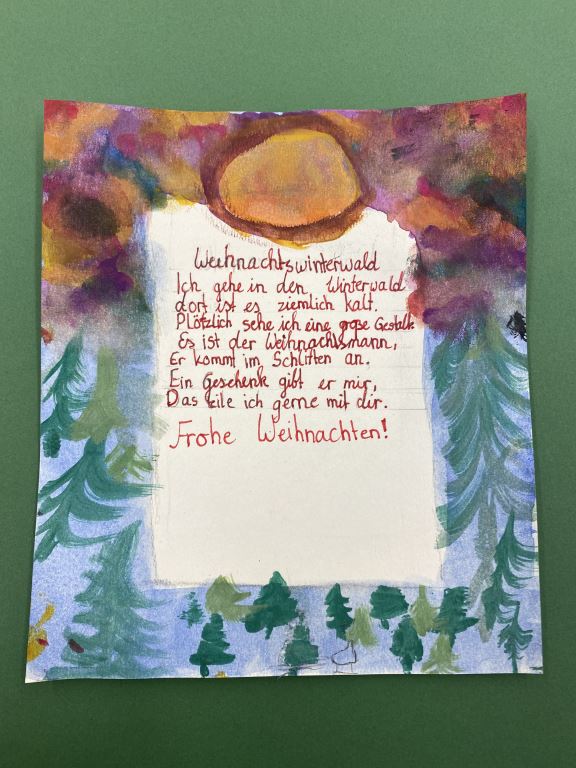 Weihnachtswinterwald
Ich gehe in den Winterwald
dort ist es ziemlich kalt.
Plötzlich sehe ich eine grose Gestalt
Es ist der Weihnachtsmann,
Er kommt im Schlitten an.
Ein Geschenk gibt er mir,
Das teile ich gerne mit dir.
Frohe Weihnachten!